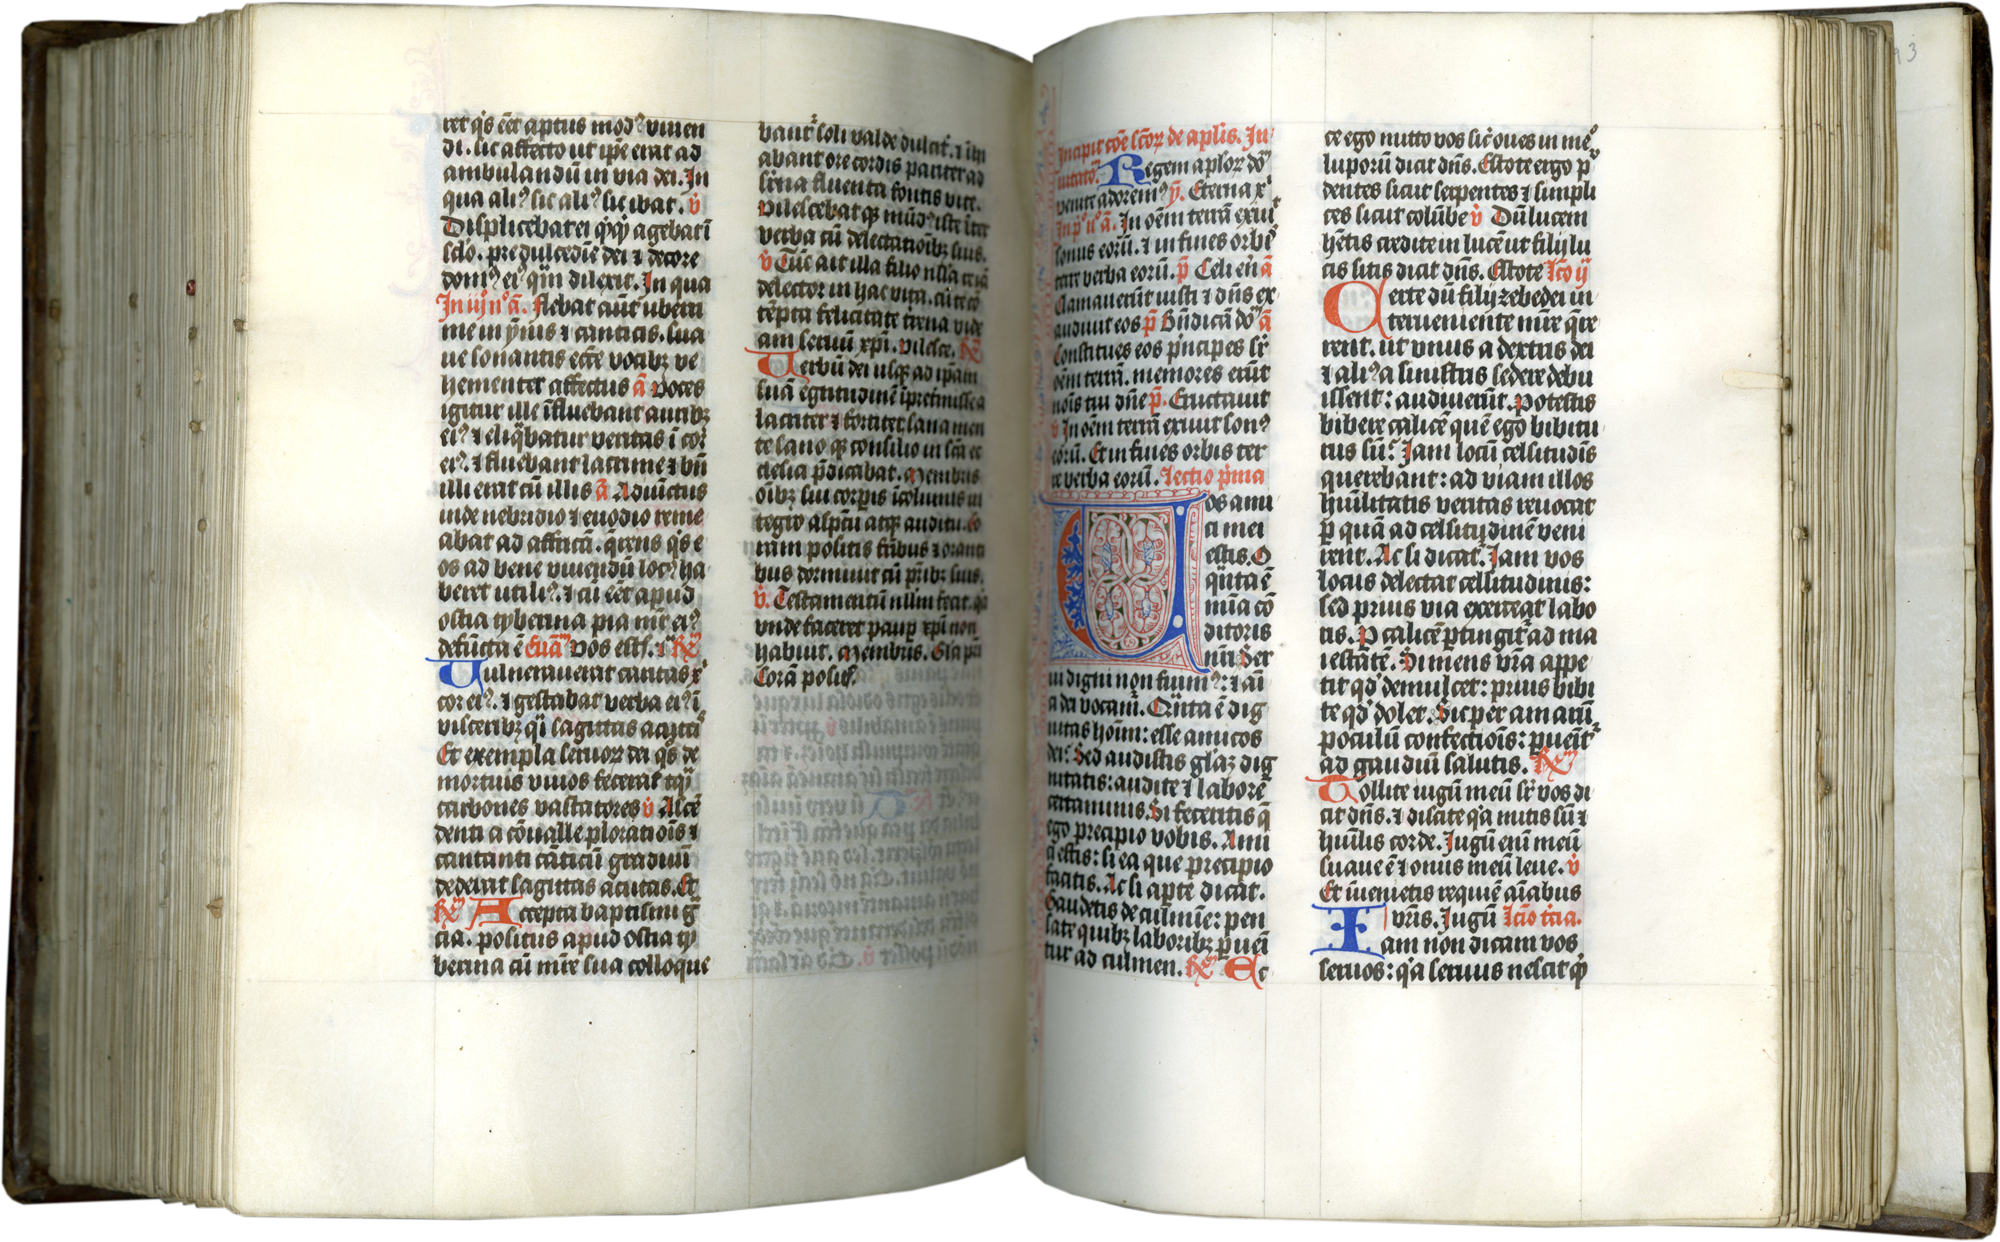 ret q̇s eēt aptus mod᷒ viuen
di. sic affecto ut ip̄e erat ad
ambulandū in via dei. In
qua ali᷒ sic ali᷒ sic ibat. v̇
Displicebat ei q̇cq̇ agebat ī
sclo. pre dulcedīe dei ⁊ decore
dom᷒ ei᷒ q̄m dilexit. In qua
In iij᷒ n᷒ a̅. Flebat aūt uberti
me in ẏmis ⁊ canticis. sua
ue sonantis ecc̄e vocibꝫ ve
hementer affectus a̅ Voces
igitur ille īfluebant auribꝫ
ei᷒ ⁊ eliq̄batur veritas ī cor
ei᷒. ⁊ fluebant lacrime ⁊ bn̄
illi erat cū illis a̅ Adiūctus
inde nebridio ⁊ euodio reme
abat ad affricā. q̄rens q̇s e
os ad bene viuendū loc᷒ ha
beret utili᷒. ⁊ cū eēt apud
ostia tyberina pia mr̄ ei᷒
defūcta ē Euā Vos estis. ⁊ ℟
Vulnerauerat caritas x̄
cor ei᷒. ⁊ gestabat verba ei᷒ ī
visceribꝫ q̄i sagittas acutas
Et exempla seruoꝝ dei q̇s de
mortuis viuos fecerat tq̄
carbones vastatores v̇ Ascē
denti a cōualle ploratiōis ⁊
cantanti cāticū graduū
dederat sagittas acutas. Et
℟ Accepta baptismi g̅
cia. positus apud ostia ty
berina cū mr̄e sua colloque
bant᷒ soli valde dulcit̄. ⁊ īhi
abant ore cordis pariter ad
sup̄na fluenta fontis vite.
Vilescebat qꝫ mūd᷒ iste īter
verba cū delectatiōibꝫ suis.
v̇ Tūc ait illa filio nl̄la re iā
delector in hac vita. cū te cō
tēpta felicitate terrena vide
am seruū xp̄i. Vilesce. ℟
Verbū dei usqꝫ ad ip̄am
suā egritudinē īpretmisse a
lacriter ⁊ fortiter sana men
te sano qꝫ consilio in scā ec
clesia p̄dicabat. Membris
oībꝫ sui corp̄is īcolumis in
tegro aspc̄tu atqꝫ auditu. Co
ram positis fr̄ibus ⁊ oranti
bus dormiuit cū pr̄ibꝫ suis.
v̇. Testamentū nllm̄ fecit. q̄a
vnde faceret paup xp̄i non
habuit. Membris. Glā pri
Corā positꝭ.
Incipit cōe scōꝝ de apl̄is. In
uitatō᷒. Regem aploꝝ dō
venite adorem᷒ ẏ. Eterna x̄
In p᷒ n᷒ a̅. In oēm terrā exiuit
sonus eorū. ⁊ in fines orbis
terre verba eorū. p̄ Celi en̄ a̅
Clamauerūt iusti ⁊ dn̄s ex
audiuit eos p̄ Bn̄dicā dō a̅
Constitues eos p̄ncipes sr̄
oēm terrā. memores erūt
nōis tui dn̄e p̄. Eructauit
v̇ In oēm terrā exiuit son᷒
eorū. Et in fines orbis ter
re verba eorū. Lectio p̄ma
Vos ami
ci mei
estis. O
q̄nta ē
mīa cō
ditoris
nr̄i Ser
ui digni non sum᷒: ⁊ ami
ci dei vocam̄. Q̄nta ē dig
nitas hoīm: esse amicos
dei. Sed audistis glaꝫ dig
nitatis: audite ⁊ laborē
certaminis. Si feceritis q̄
ego precipio vobis. Ami
ci estis: si ea que precipio
facitis. Ac si ap̄te dicat.
Gaudetis de culmīe: pen
sate quibꝫ laboribꝫ ꝑueni
tur ad culmen. ℟ Ec
ce ego mitto vos sic̄ oues in me᷒
luporū dicit dn̄s. Estote ergo p᷒
dentes sicut serpentes ⁊ simpli
ces sicut colūbe v̇ Dū lucem
hētis credite in lucē ut filij lu
cis sitis dicit dn̄s. Estote Lc̄o ij
Certe dū filij zebedei in
terueniente mr̄e q̄re
rent. ut vnus a dextris dei
⁊ ali᷒ a sinistris sedere debu
issent: audiuerūt. Potestis
bibere calicē quē ego bibitu
rus sū: Jam locū celsitudīs
querebant: ad viam illos
hūilitatis veritas reuocat
ꝑ quā ad celsitudinē veni
rent. Ac si dicat. Jam vos
locus delectat celsitudinis:
sed prius via exerceat labo
ris. P calicē ꝑtingit᷒ ad ma
iestatē. Si mens vr̄a appe
tit qd̄ demulcet: prius bibi
te qd̄ dolet. Sic per amarū
poculū confectiōis: ꝑueīt᷒
ad gaudiū salutis. ℟
Tollite iugū meū sr̄ vos di
cit dn̄s. ⁊ discite q̄a mitis sū ⁊
hūilis corde. Jugū eni meū
suaue ē ⁊ onus meū leue. v̇
Et īuenietis requiē aīabus
vr̄is. Jugū Lc̄io tc̄ia.
Iam non dicam vos
seruos: q̄a seruus nescit q̇
93